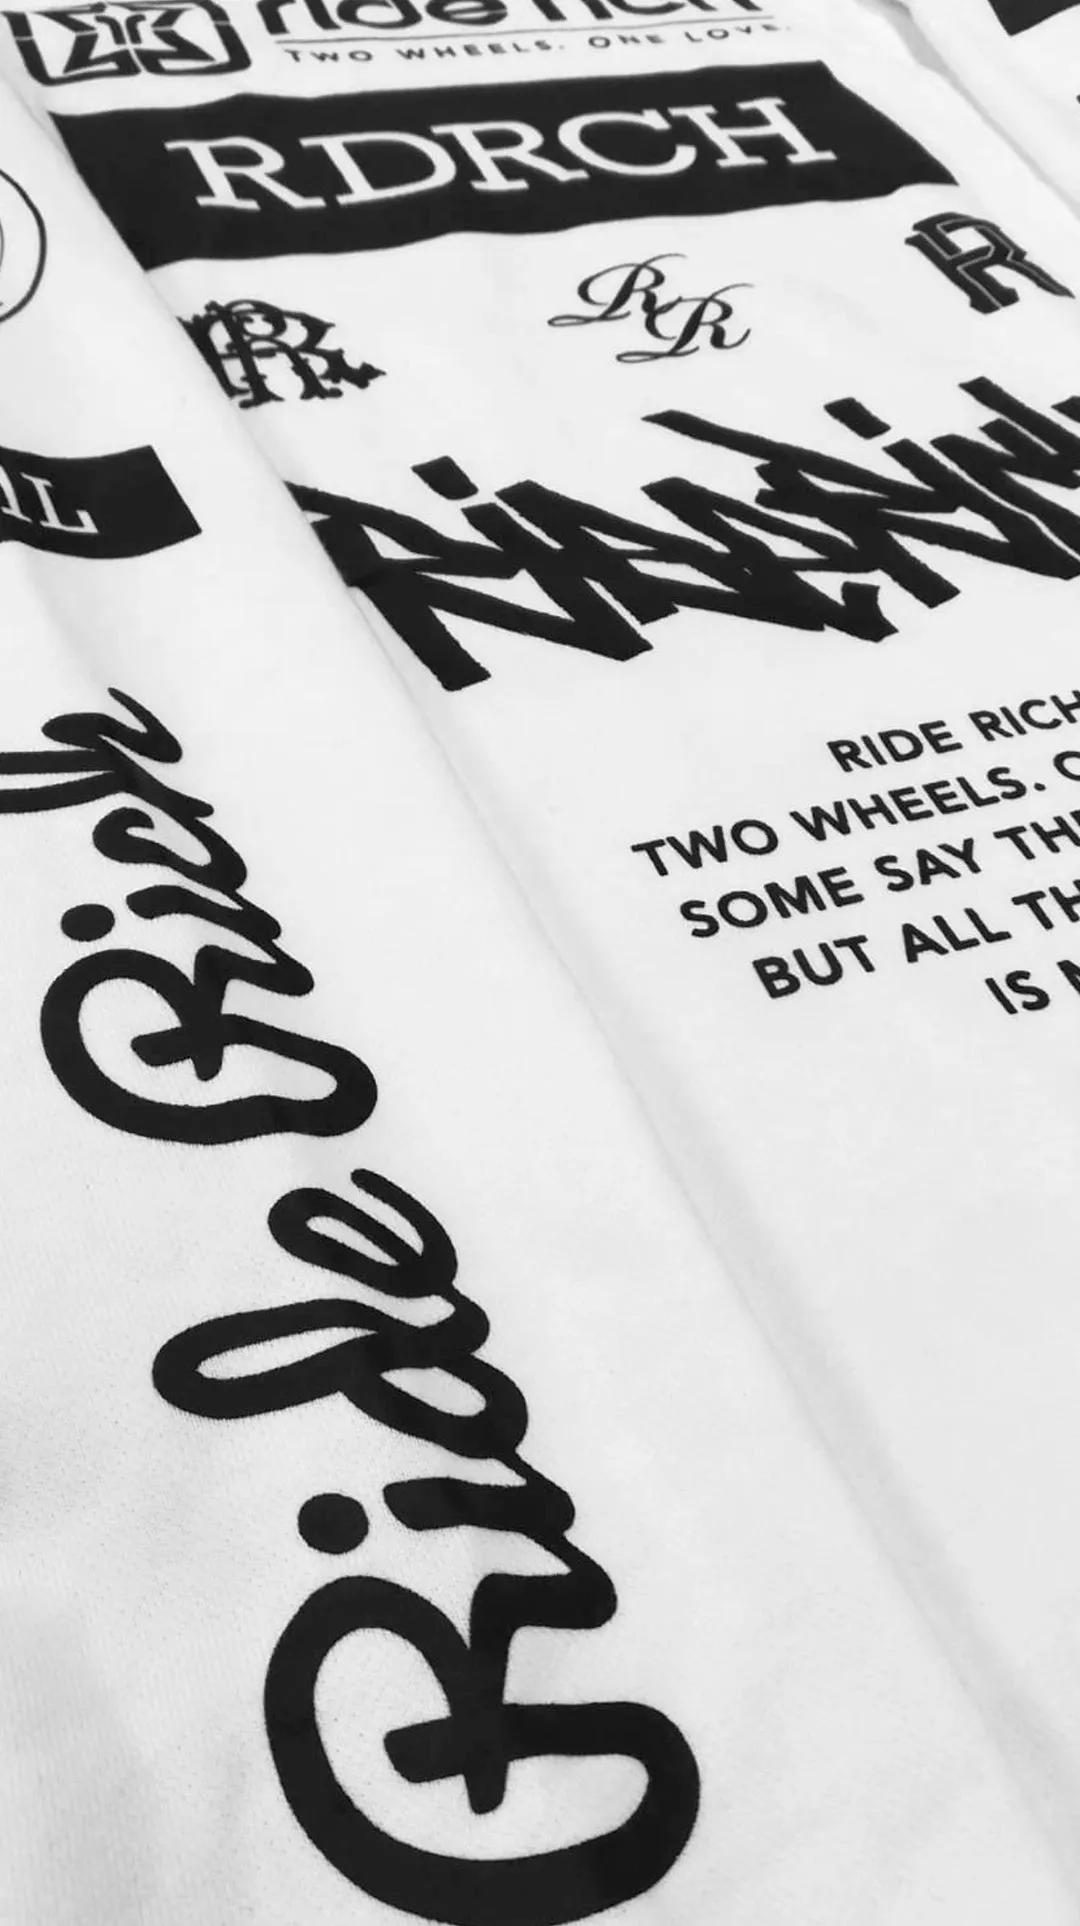 ride rich
TWO WHEELS. ONE LOVE.
RDRCH
RR
RR
RR
IL
RIDE RICH
TWO WHEELS. O
SOME SAY THE
BUT ALL TH
IS
Ride Rich